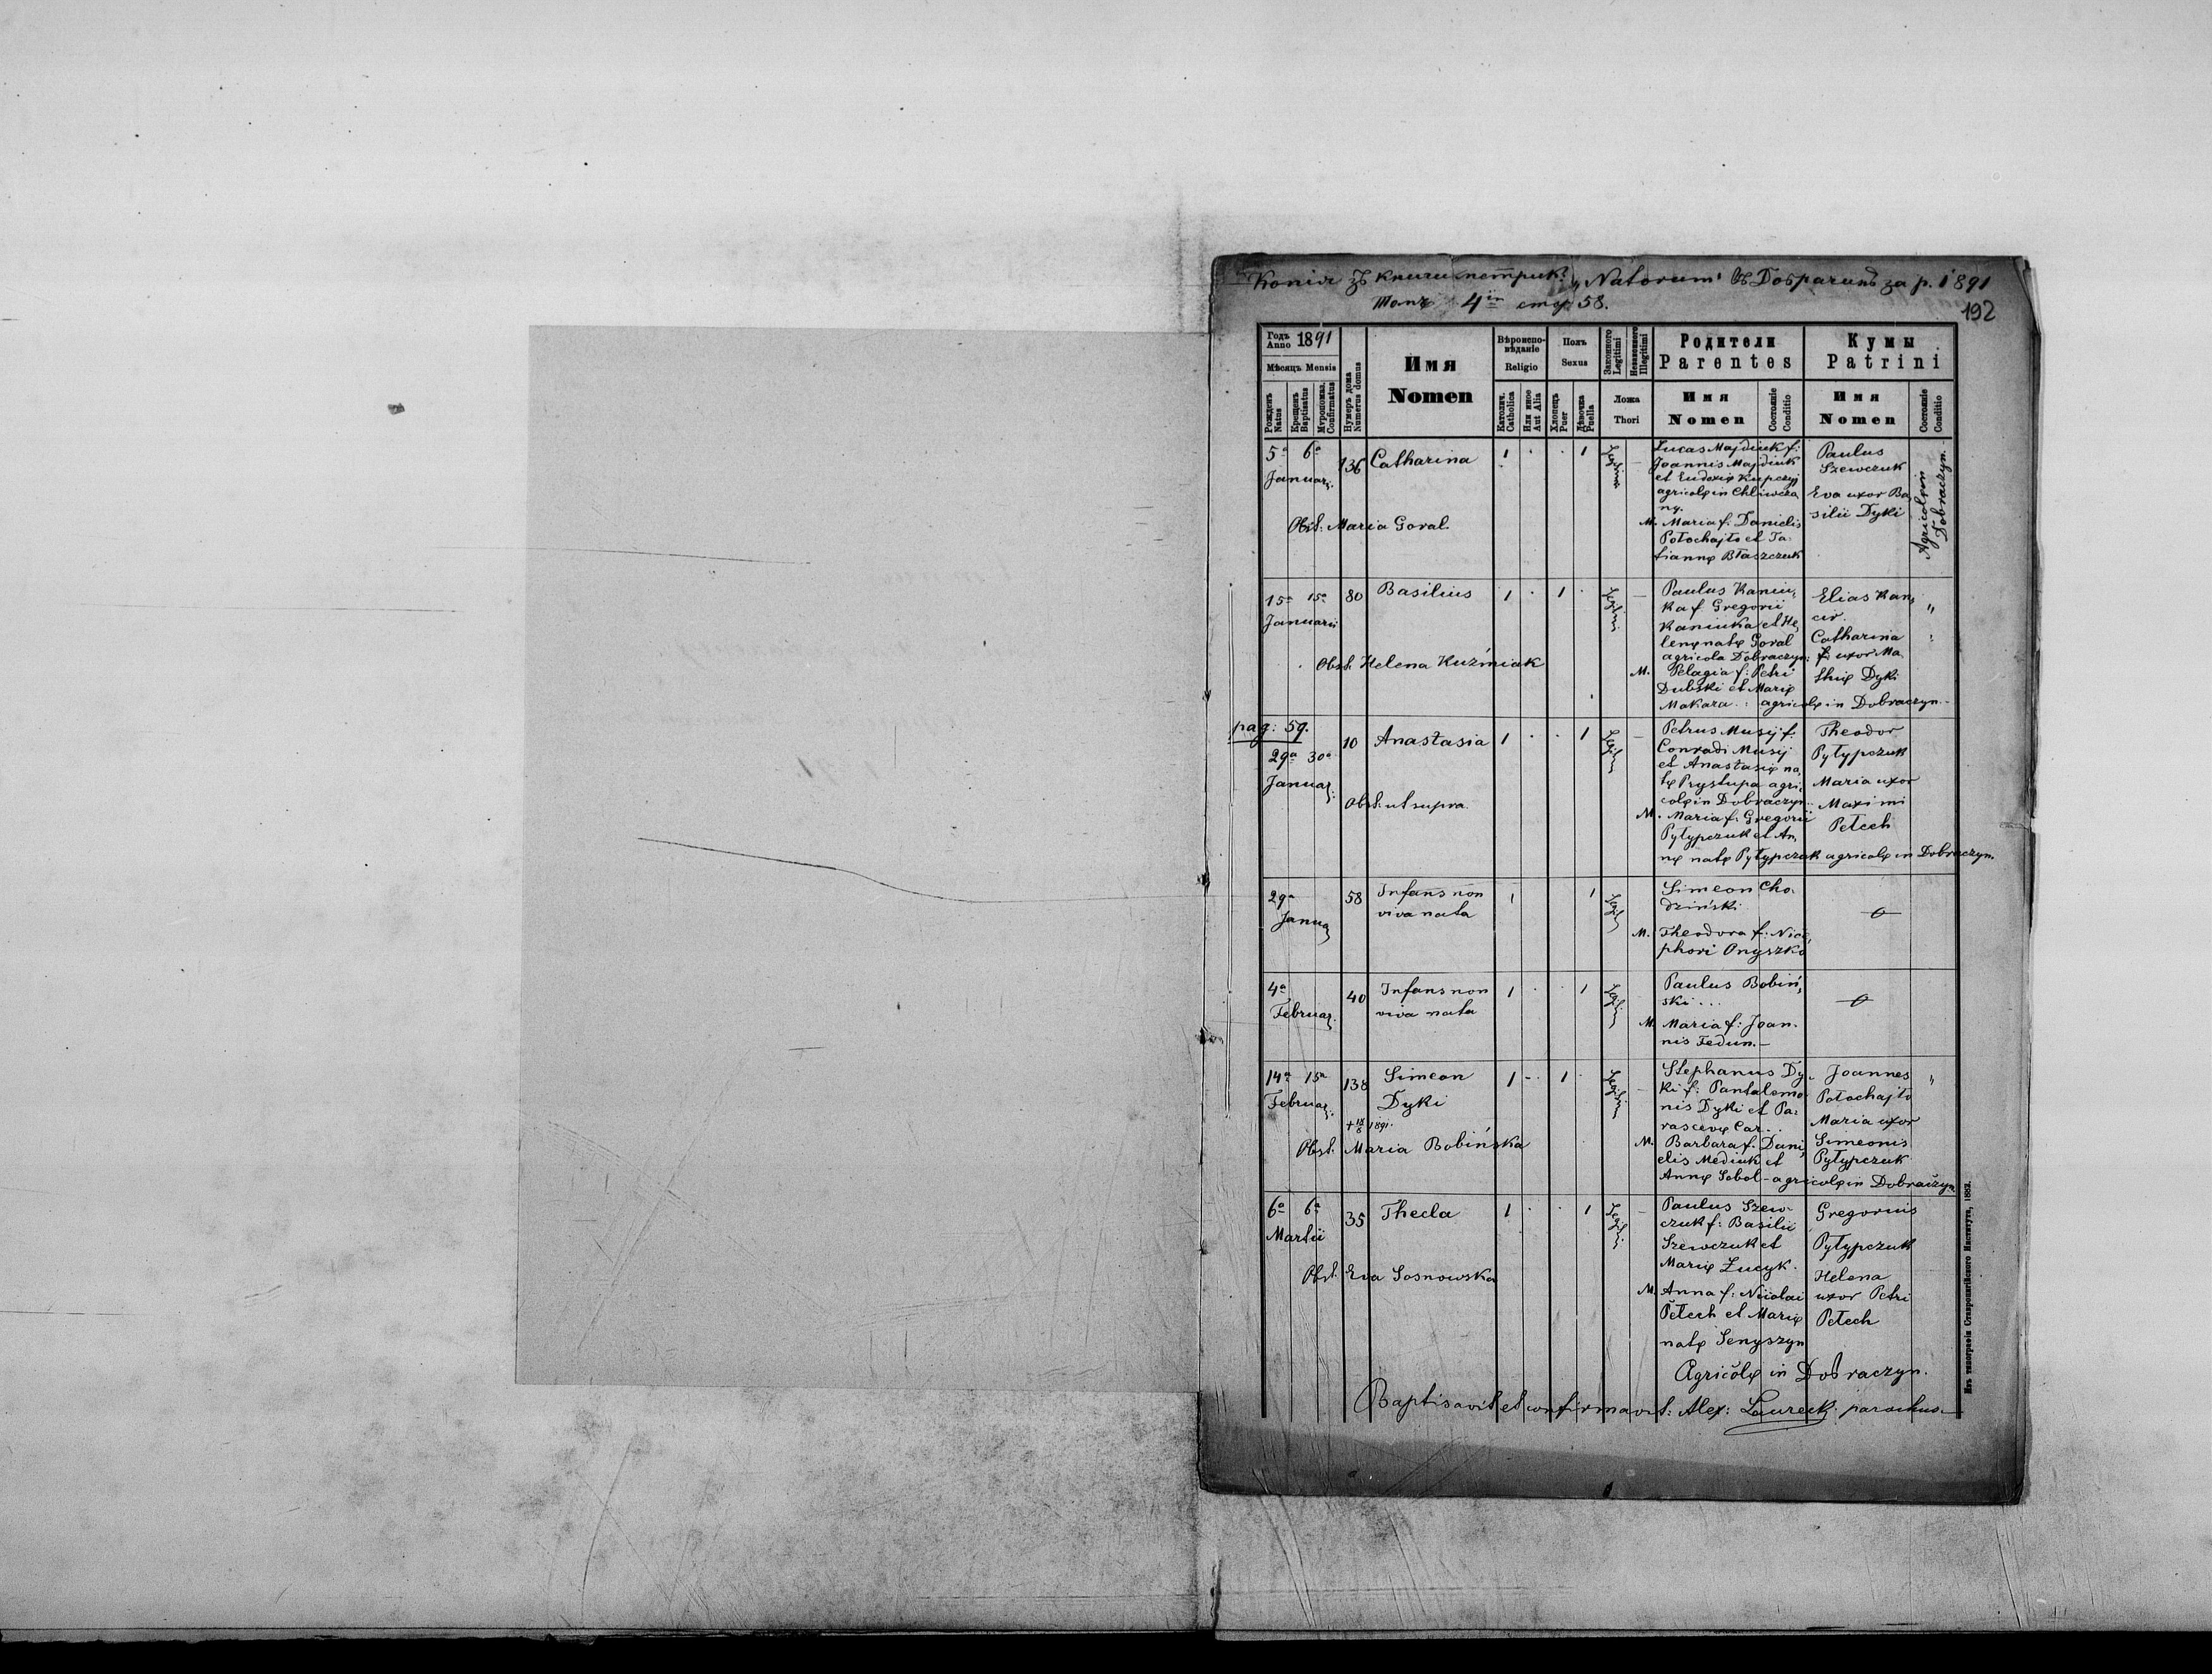 Копія зъ книги метрик. „Natorum" въ Добрачинѣ за р. 1891
Томъ 4 in стр 58.
192
Годъ Anno 1891
Мѣсяцъ Mensis
Рожденъ Natus
Крещенъ Baptisatus
Мѵропомаз. Confirmatus
Нумеръ дома Numerus domus
Имя
Nomen
Вѣроиспо-
вѣданіе
Religio
Католич. Catholica
Или иное Aut Alia
Полъ
Sexus
Хлопецъ Puer
Дѣвочка Puella
Законного Legitimi
Незаконного Illegitimi
Ложа
Thori
Родители
Parentes
Имя
Nomen
Состояніе Conditio
Кумы
Patrini
Имя
Nomen
Состояніе Conditio
5a 6a 136 Catharina 1 . . 1
Januar.
Obst: Maria Goral.
Lucas Majdiuk f:
Joannis Majdiuk
et Eudoxię Kupczyj
agricolę in Chliwcza
ny.
M. Maria f: Danielis
Potochajło et Ta-
tiannę Błaszczuk
Paulus
Szewczuk
Eva uxor Ba
silii Dyki
Agricolę in
Dobraczyn.
15a 15a 80 Basilius 1 . 1 .
Januarii
Obst. Helena Kuźmiak
Paulus Kaniu,
ka f Gregorii
Kaniuka et He,
lenę natę Goral
agricola Dobraczyn:
M. Pelagia f: Petri
Dubski et Marię
Makara .: agricolę in Dobraczyn.-
Elias Kan,
cir.
Catharina
uxor Ma
thię Dyki
pag: 59.
29a 30a 10 Anastasia 1 . . 1
Januar.
Obst. ut supra.
Petrus Musij f:
Conradi Musij
et Anastasię na,
tę Prystupa agri,
colę in Dobraczyn..
M. Maria f: Gregorii
Pyłypczuk et An,
nę natę Pyłypczuk agricolę in Dobraczyn.
Theodor
Pyłypczuk
Maria uxor
Maximi
Pełech
29a 58 Infans non 1 1
Januar viva nata
Simeon Cho.
dziński
M. Theodora f: Nice,
phori Onyszko
4a 40 Infans non 1 . . 1
Februar. viva nata
Paulus Bobiń,
ski ...
M. Maria f: Joan.
nis Fedun.-
14a 15a 138 Simeon 1 - 1
Februar. Dyki
1891.
Obst. Maria Bobińska
Stephanus Dy,
ki f: Pantalemo
nis Dyki et Pa:
rascevę Car...
M. Barbara f. Dani,
elis Mediuk et
Annę Sobol - agricolę in Dobraczyn
Joannes
Potochajło
Maria uxor
Simeonis
Pyłypczuk
6a 6a 35 Thecla 1 . . 1
Martii
Obst. Eva Sosnowska
Paulus Szew-
czuk f: Basilii
Szewczuk et
Marię Łucyk.
M. Anna f: Nicolai
Pełech et Marię
natę Senyszyn
Gregorius
Pyłypczuk
Helena
uxor Petri
Pełech
Agricolę in Dobraczyn.
Baptisavit et confirmavit: Alex: Laureck. parochus.
Изъ типографіи Ставропигійского Института, 1883.